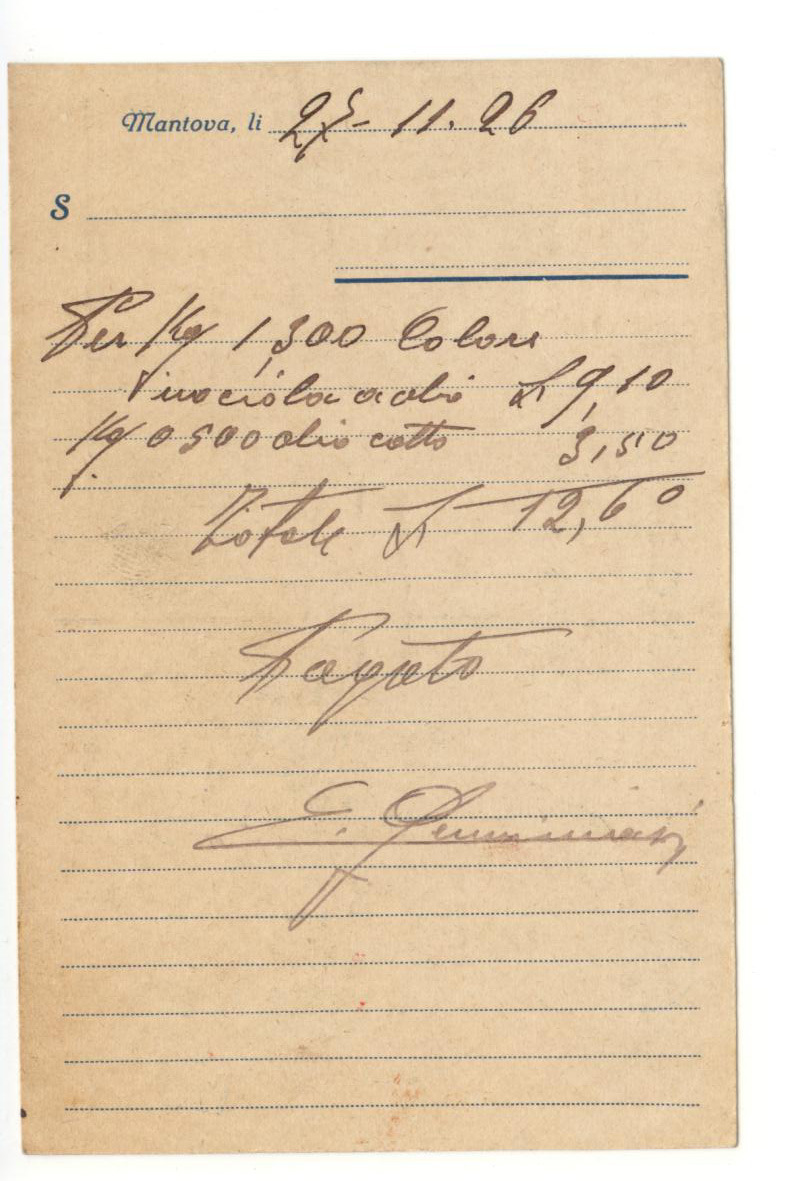 Mantova, li 25 - 11. 26
S
Per Kg 1,300 Colore
a olio L 9,10
Kg 0500 olio cotto 3,50
Totale L 12,60
Pagato